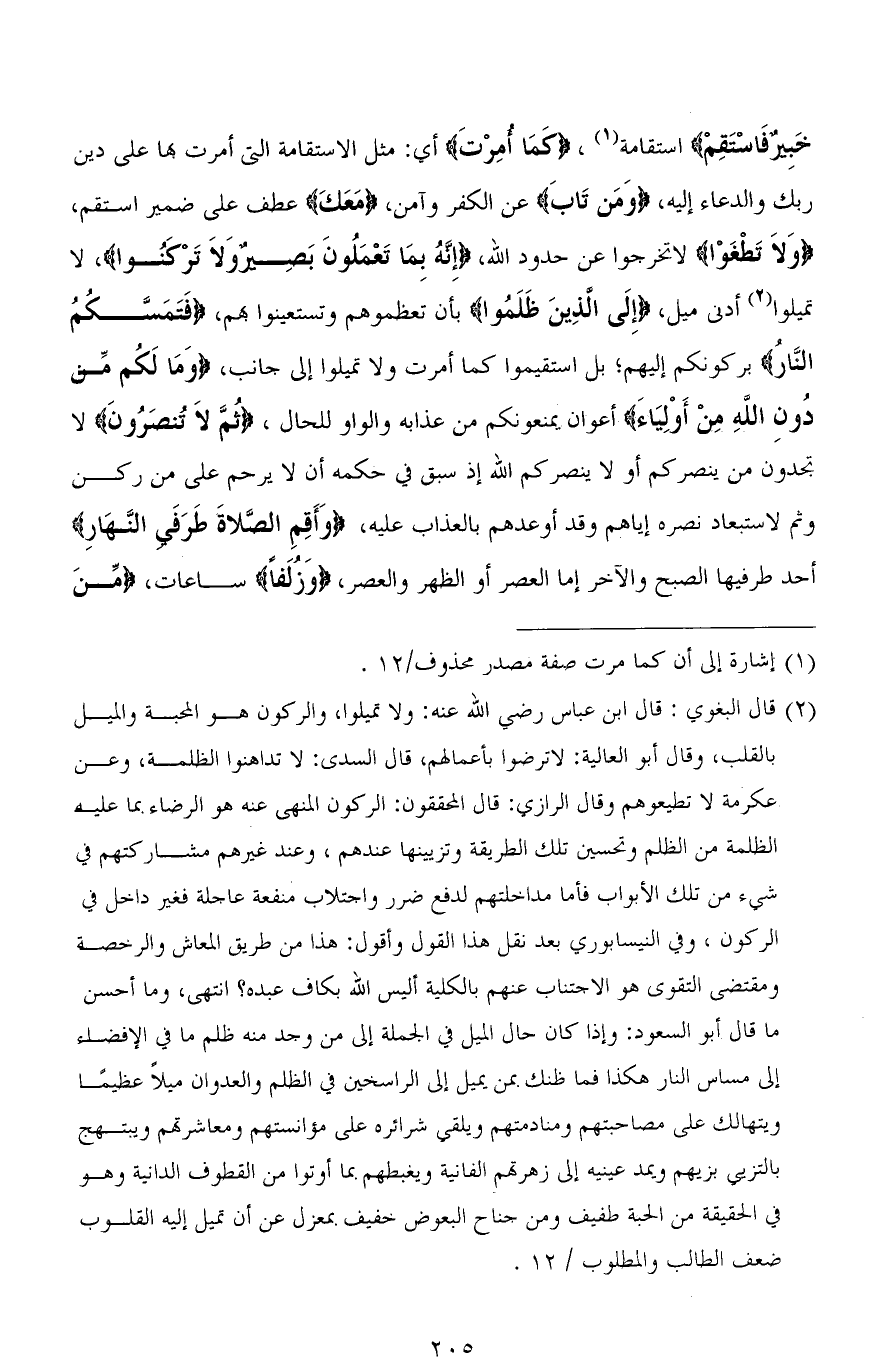 خَبِيرٌ فَاسْتَقِمْ﴾ استقامة(١) ، ﴿كَمَا أُمِرْتَ﴾ أي: مثل الاستقامة التى أمرت بها على دين
ربك والدعاء إليه، ﴿وَمَن تَابَ﴾ عن الكفر وآمن، ﴿مَعَكَ﴾ عطف على ضمير استقم،
﴿وَلاَ تَطْغَوْا﴾ لاتخرجوا عن حدود الله، ﴿إِنَّهُ بِمَا تَعْمَلُونَ بَصِيرٌ وَلاَ تَرْكَنُوا﴾، لا
تميلوا(٢) أدنى ميل، ﴿إِلَى الَّذِينَ ظَلَمُوا﴾ بأن تعظموهم وتستعينوا بهم، ﴿فَتَمَسَّكُمُ
النَّارُ﴾ بركونكم إليهم؛ بل استقيموا كما أمرت ولا تميلوا إلى جانب، ﴿وَمَا لَكُم مِّن
دُونِ اللَّهِ مِنْ أَوْلِيَاءَ﴾ أعوان يمنعونكم من عذابه والواو للحال ، ﴿ثُمَّ لاَ تُنصَرُونَ﴾ لا
تجدون من ينصركم أو لا ينصركم الله إذ سبق في حكمه أن لا يرحم على من ركن
وثم لاستبعاد نصره إياهم وقد أوعدهم بالعذاب عليه، ﴿وَأَقِمِ الصَّلاةَ طَرَفَيِ النَّهَارِ﴾
أحد طرفيها الصبح والآخر إما العصر أو الظهر والعصر، ﴿وَزُلَفاً﴾ ساعات، ﴿مِّنَ
(١) إشارة إلى أن كما مرت صفة مصدر محذوف/١٢ .
(٢) قال البغوي : قال ابن عباس رضي الله عنه: ولا تميلوا، والركون هو المحبة والميل
بالقلب، وقال أبو العالية: لاترضوا بأعمالهم، قال السدى: لا تداهنوا الظلمة، وعن
عكرمة لا تطيعوهم وقال الرازي: قال المحققون: الركون المنهى عنه هو الرضاء بما عليه
الظلمة من الظلم وتحسين تلك الطريقة وتزيينها عندهم ، وعند غيرهم مشاركتهم في
شيء من تلك الأبواب فأما مداخلتهم لدفع ضرر واجتلاب منفعة عاجلة فغير داخل في
الركون ، وفي النيسابوري بعد نقل هذا القول وأقول: هذا من طريق المعاش والرخصة
ومقتضى التقوى هو الاجتناب عنهم بالكلية أليس الله بكاف عبده؟ انتهى، وما أحسن
ما قال أبو السعود: وإذا كان حال الميل في الجملة إلى من وجد منه ظلم ما في الإفضاء
إلى مساس النار هكذا فما ظنك بمن يميل إلى الراسخين في الظلم والعدوان ميلاً عظيمًا
ويتهالك على مصاحبتهم ومنادمتهم ويلقي شرائره على مؤانستهم ومعاشرتهم ويبتهج
بالتزيي بزيهم ويمد عينيه إلى زهرتهم الفانية ويغبطهم بما أوتوا من القطوف الدانية وهو
في الحقيقة من الحبة طفيف ومن جناح البعوض خفيف بمعزل عن أن تميل إليه القلوب
ضعف الطالب والمطلوب / ١٢ .
٢٠٥